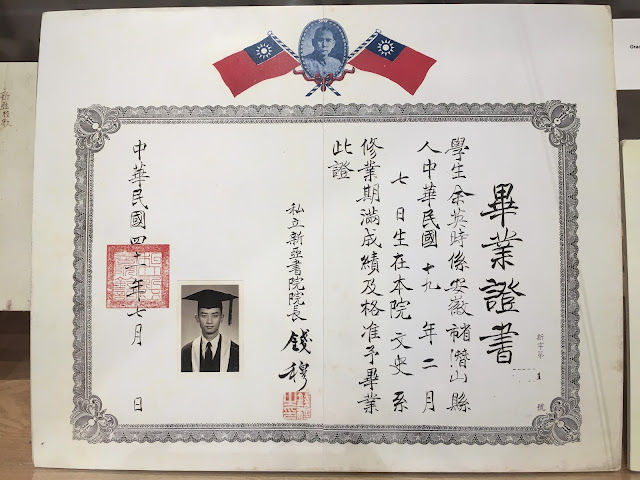 畢業證書
新字第 1 號
學生余英時係安徽省潛山縣
人中華民國十九年二月
七日生在本院文史系
修業期滿成績及格准予畢業
此證
私立新亞書院院長 錢穆
中華民國四十一年七月 日